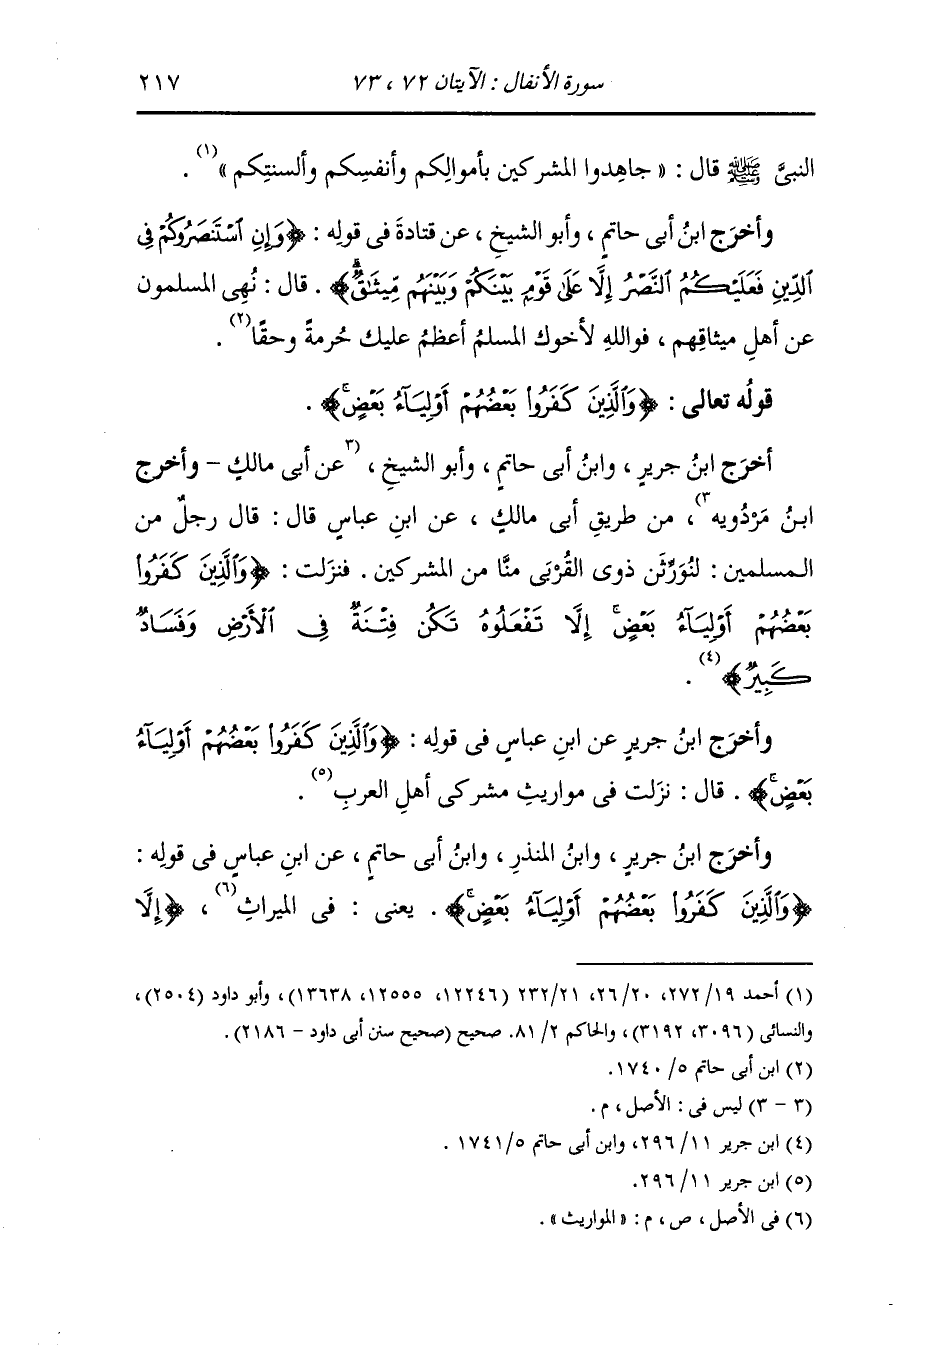 سورة الأنفال : الآيتان ٧٢ ، ٧٣ ٢١٧
النبىَّ ﷺ قال : « جاهِدوا المشركين بأموالِكم وأنفسِكم وألسنتِكم »(١) .
وأخرَج ابنُ أبى حاتمٍ ، وأبو الشيخِ ، عن قتادةَ فى قولِه : ﴿وَإِنِ ٱسْتَنصَرُوكُمْ فِى
ٱلدِّينِ فَعَلَيْكُمُ ٱلنَّصْرُ إِلَّا عَلَىٰ قَوْمٍۭ بَيْنَكُمْ وَبَيْنَهُم مِّيثَٰقٌۗ﴾ . قال : نُهِى المسلمون
عن أهلِ ميثاقِهم ، فواللهِ لأخوك المسلمُ أعظمُ عليك حُرمةً وحقًا(٢) .
قولُه تعالى : ﴿وَٱلَّذِينَ كَفَرُوا۟ بَعْضُهُمْ أَوْلِيَآءُ بَعْضٍۚ﴾ .
أخرَج ابنُ جريرٍ ، وابنُ أبى حاتمٍ ، وأبو الشيخِ ، (٣عن أبى مالكٍ – وأخرج
ابنُ مَرْدُويه٣) ، من طريقِ أبى مالكٍ ، عن ابنِ عباسٍ قال : قال رجلٌ من
المسلمين : لنُوَرِّثَن ذوى القُرْبَى منَّا من المشركين . فنزَلت : ﴿وَٱلَّذِينَ كَفَرُوا۟
بَعْضُهُمْ أَوْلِيَآءُ بَعْضٍۚ إِلَّا تَفْعَلُوهُ تَكُن فِتْنَةٌ فِى ٱلْأَرْضِ وَفَسَادٌ
كَبِيرٌ﴾(٤) .
وأخرَج ابنُ جريرٍ عن ابنِ عباسٍ فى قولِه : ﴿وَٱلَّذِينَ كَفَرُوا۟ بَعْضُهُمْ أَوْلِيَآءُ
بَعْضٍۚ﴾ . قال : نزَلت فى مواريثِ مشركى أهلِ العربِ(٥) .
وأخرَج ابنُ جريرٍ ، وابنُ المنذرِ ، وابنُ أبى حاتمٍ ، عن ابنِ عباسٍ فى قولِه :
﴿وَٱلَّذِينَ كَفَرُوا۟ بَعْضُهُمْ أَوْلِيَآءُ بَعْضٍۚ﴾ . يعنى : فى الميراثِ(٦) ، ﴿إِلَّا
(١) أحمد ١٩/ ٢٧٢، ٢٠/ ٢٦، ٢١/ ٢٣٢ (١٢٢٤٦، ١٢٥٥٥، ١٣٦٣٨)، وأبو داود (٢٥٠٤)،
والنسائى (٣٠٩٦، ٣١٩٢)، والحاكم ٢/ ٨١. صحيح (صحيح سنن أبى داود – ٢١٨٦).
(٢) ابن أبى حاتم ٥/ ١٧٤٠.
(٣ – ٣) ليس فى : الأصل ، م .
(٤) ابن جرير ١١/ ٢٩٦، وابن أبى حاتم ٥/ ١٧٤١ .
(٥) ابن جرير ١١/ ٢٩٦.
(٦) فى الأصل ، ص ، م : « المواريث » .